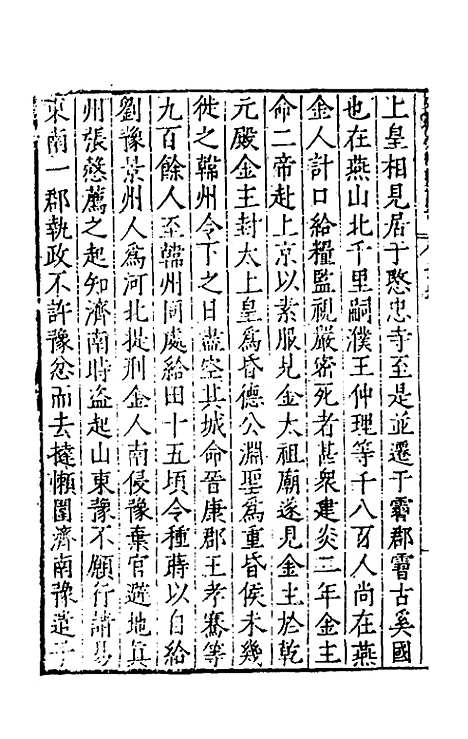 上皇相見居于愍忠寺至是並遷于霫郡霫古奚國
也在燕山北千里嗣濮王仲理等千八百人尚在燕
金人計口給糧監視嚴密死者甚衆建炎二年金主
命二帝赴上京以素服見金太祖廟遂見金主於乾
元殿金主封太上皇爲昏德公淵聖爲重昏侯未幾
徙之韓州令下之日盡空其城命晉康郡王孝騫等
九百餘人至韓州同處給田十五頃令種蒔以自給
劉豫景州人爲河北提刑金人南侵豫棄官避地真
州張慤薦之起知濟南時盗起山東豫不願行請易
東南一郡執政不許豫忿而去撻懶圍濟南豫遣子